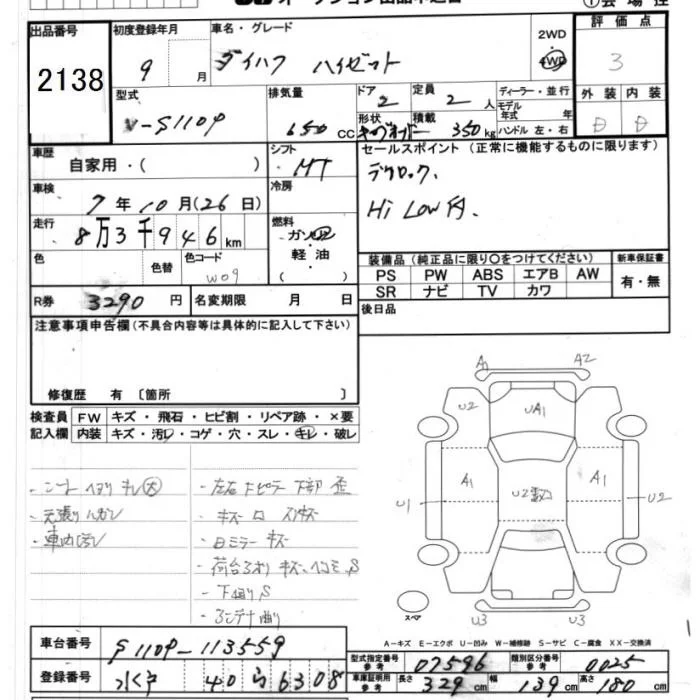 出品番号 2138
初度登録年月 9 月
車名・グレード ダイハツ ハイゼット
2WD
4WD
評価点 3
型式 V-S110P
排気量 650 CC
ドア 2
定員 2 人
形状
積載 350 kg
ディーラー・並行
モデル年式 年
ハンドル 左・右
外装 内装
D D
車歴 自家用・( )
シフト MT
セールスポイント(正常に機能するものに限ります)
デフロック.
Hi Low付.
車検 7 年 10 月(26 日)
冷房
走行 8万3千946 km
燃料 ガソリン
軽油
( )
色 色替 色コード W09
装備品(純正品に限り○をつけてください) 新車保証書
PS PW ABS エアB AW
SR ナビ TV カワ
有・無
R券 3290 円 名変期限 月 日
後日品
注意事項申告欄(不具合内容等は具体的に記入して下さい)
修復歴 有 〔箇所 〕
検査員記入欄
FW キズ・飛石・ヒビ割・リペア跡・×要
内装 キズ・汚れ・コゲ・穴・スレ・キレ・破レ
・シート ヘタリ キレ大
・天張りハガレ
・車内汚レ
・左右 下部 歪
・ミラー キズ
・荷台 キズ、ヘコミ、S
・下回りS
・アンテナ曲り
A1 A2
U2 UA1
A1 A1
U1 U2 U2
U3 U3
スペア
A-キズ E-エクボ U-凹み W-補修跡 S-サビ C-腐食 XX-交換済
車台番号 S110P-113559
登録番号 水戸 40 ら 6308
型式指定番号 参考 07596 類別区分番号 参考 0025
車庫証明用 参考 長さ 329 cm 幅 139 cm 高さ 180 cm